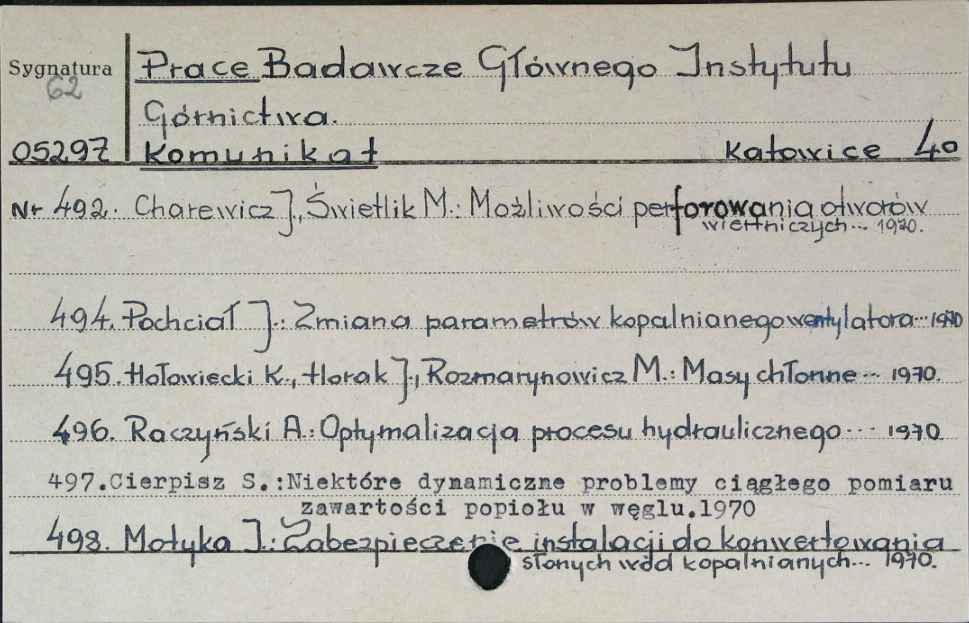 Sygnatura Prace Badawcze Głównego Instytutu
62
Górnictwa.
05297 Komunikat Katowice 40
Nr 492. Charewicz J., Świetlik M.: Możliwości perforowania otworów
wiertniczych... 1970.
494. Pochciał J.: Zmiana parametrów kopalnianego wentylatora... 1970
495. Hołowiecki K., Horak J., Rozmarynowicz M.: Masy chłonne... 1970.
496. Raczyński A.: Optymalizacja procesu hydraulicznego... 1970
497.Cierpisz S.:Niektóre dynamiczne problemy ciągłego pomiaru
zawartości popiołu w węglu.1970
498. Motyka J.: Zabezpieczenie instalacji do konwertowania
słonych wód kopalnianych... 1970.